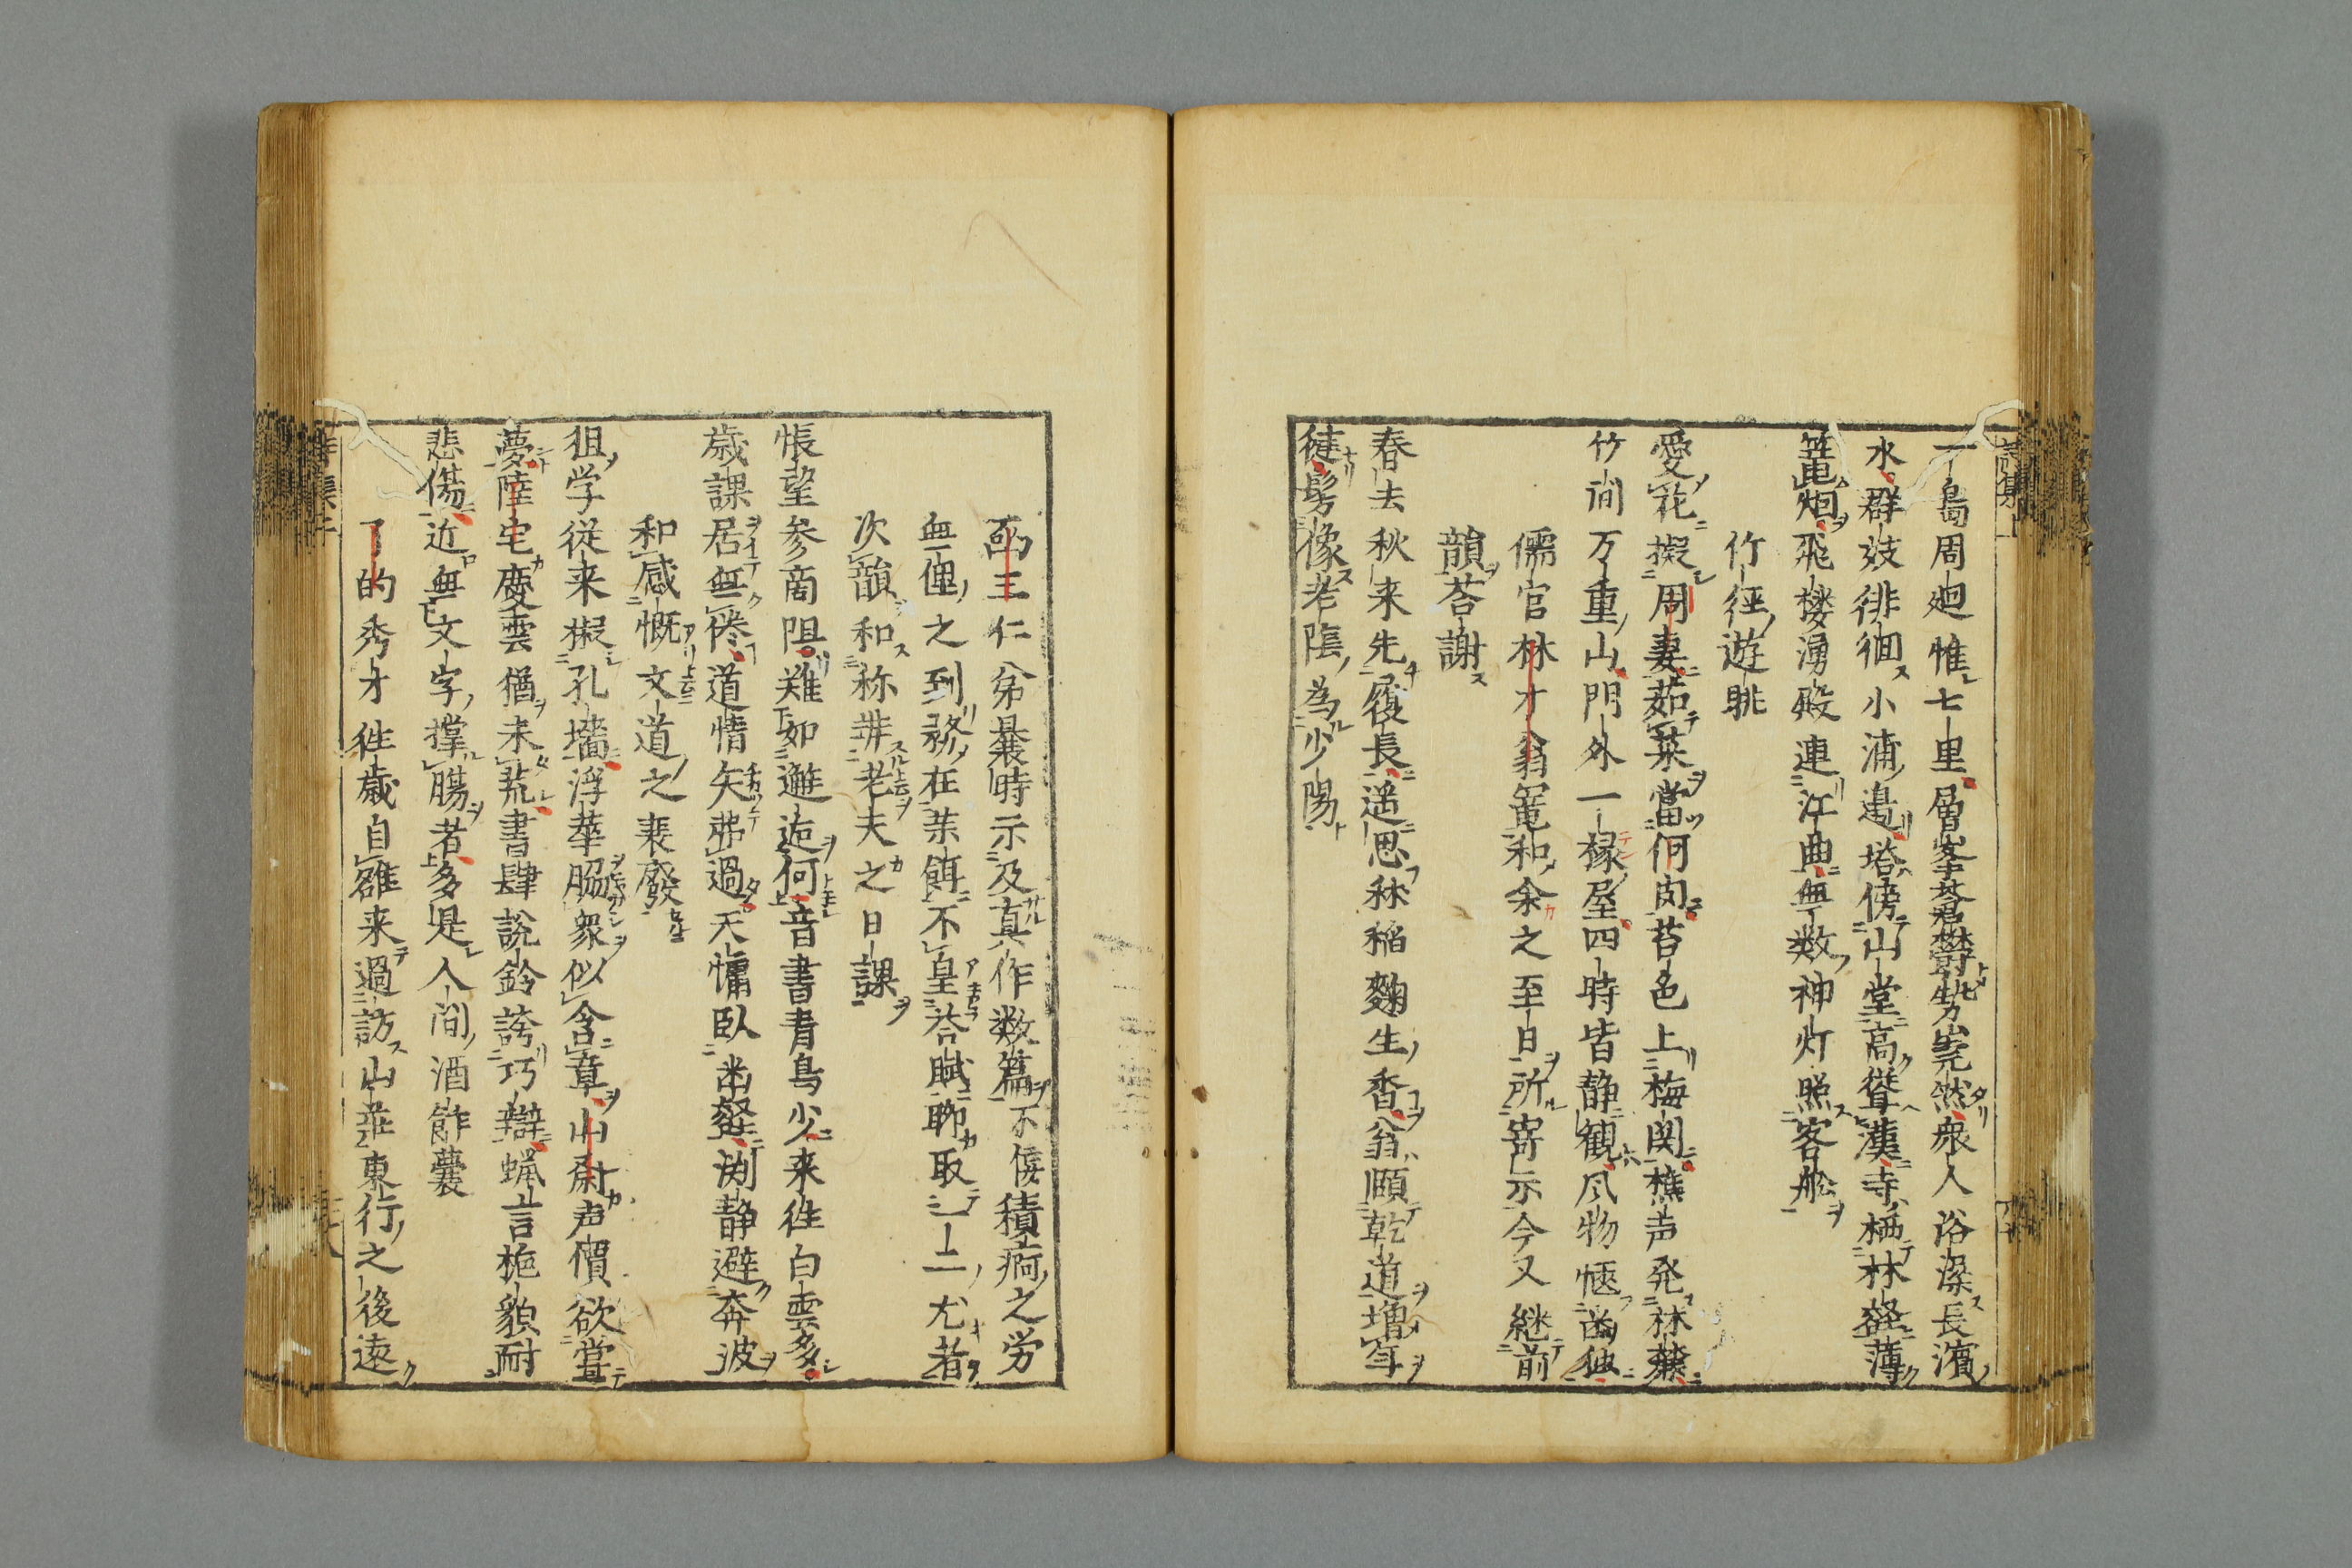 一島周廻惟七里層峯蒼欝勢嶤然衆人浴深長濱
水群妓徘徊小浦邉塔傍山堂高聳漢寺栖林盤薄
篭烟飛楼湧殿連江曲無数神灯照客舩
竹径遊眺
愛花擬周妻茹菜當何肉苔色上梅関樵声発林麓
竹澗万重山門外一椽屋四時皆静観风物惬幽独
儒官林才翁篭和余之至日所寄示今又継前
韻荅謝
春去秋来先履長遥思秫稲麹生香翁頤乾道増年
健髣像老陰為少陽
函三仁弟曩時示及真作数篇不佞積痾之労
無俚之到務在薬餌不皇荅賦聊取一二尤者
次韻和称丼老夫之日課
悵望参商阻難如邂逅何音書青鳥少来徃白雲多
歳課居無倦道情矢弗過天慵臥幽壑渕静避奔波
和感慨文道之衰廢
狙学従来擬孔墻浮華脇衆似含章山斎声價欲當
夢陸宅慶雲猶未荒書肆説鈴誇巧辯蝋言梔貌耐
悲傷近無文字撑腸者多是人間酒飰囊
了的秀才徃歳自雒来過訪山菴東行之後遠